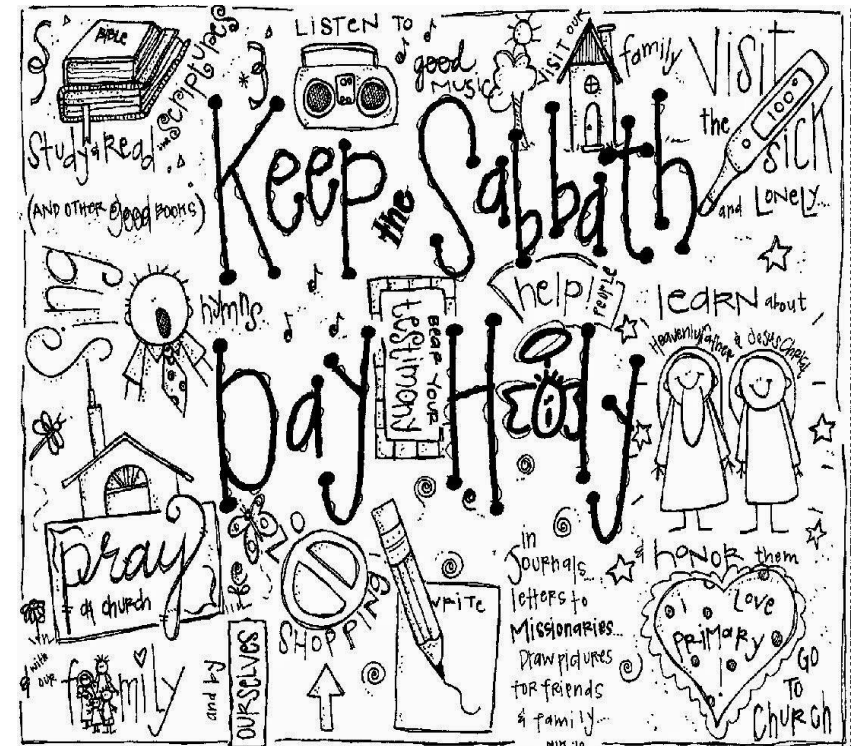 BIBLE
Study & Read
the Scriptures
(AND OTHER good BOOKS)
LISTEN TO
good
MUSIC
VISIT OUR
family
VISIT
the
SICK
and LONELY...
100°
Keep the Sabbath
Day Holy
Sing
hymns
BEAR YOUR
testimony
help
PEOPLE
LEARN about
Heavenly Father & Jesus Christ
& HONOR them
pray
at church
with
our
family
and by
OURSELVES
NO
SHOPPING
write
in
Journals...
letters to
Missionaries...
Draw pictures
for friends
& family...
I Love
PRIMARY
!
GO
TO
CHURCH